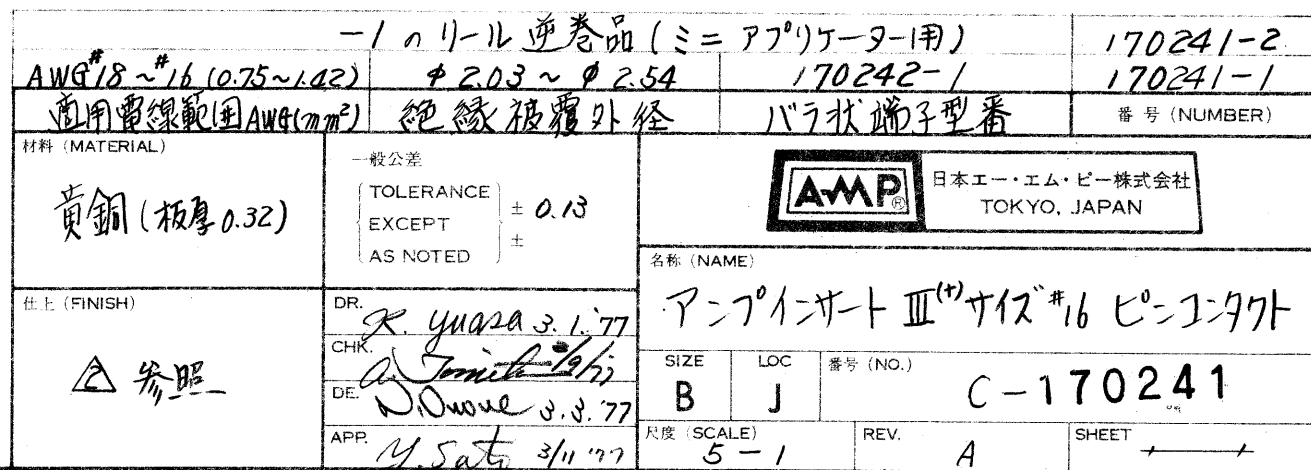 -1のリール逆巻品(ミニアプリケーター用) 170241-2
AWG#18~#16 (0.75~1.42) φ2.03~φ2.54 170242-1 170241-1
適用電線範囲AWG(mm²) 絶縁被覆外径 バラ状端子型番 番号 (NUMBER)
材料 (MATERIAL)
黄銅(板厚0.32)
一般公差
TOLERANCE
EXCEPT
AS NOTED
± 0.13
±
AMP®
日本エー・エム・ピー株式会社
TOKYO, JAPAN
名称 (NAME)
アンプインサート III(+)サイズ#16 ピンコンタクト
仕上 (FINISH)
2 参照
DR. K. Yuasa 3.1.'77
CHK.
DE. 3.3.'77
APP. Y. Sato 3/11 '77
SIZE
B
LOC
J
番号 (NO.)
C-170241
尺度 (SCALE)
5-1
REV.
A
SHEET